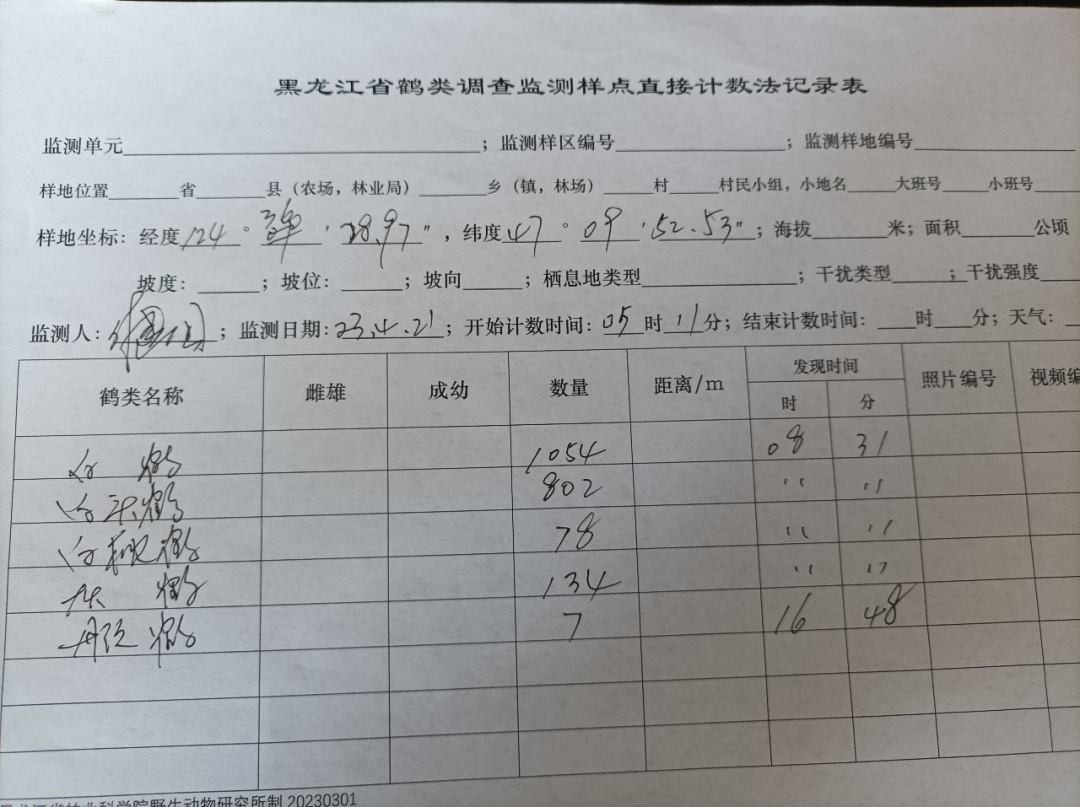 黑龙江省鹤类调查监测样点直接计数法记录表
监测单元；监测样区编号；监测样地编号
样地位置 省 县（农场，林业局） 乡（镇，林场） 村 村民小组，小地名 大班号 小班号
样地坐标：经度124° ' 28.97"，纬度47°09'52.53"；海拔 米；面积 公顷
坡度：；坡位：；坡向；栖息地类型；干扰类型；干扰强度
监测人：；监测日期：23.4.21；开始计数时间：05时11分；结束计数时间： 时 分；天气：
鹤类名称 雌雄 成幼 数量 距离/m 发现时间 照片编号 视频编
时 分
白鹤 1054 08 31
白头鹤 802 〃 〃
白枕鹤 78 〃 〃
灰鹤 134 〃 〃
丹顶鹤 7 16 48
黑龙江省林业科学院野生动物研究所制 20230301